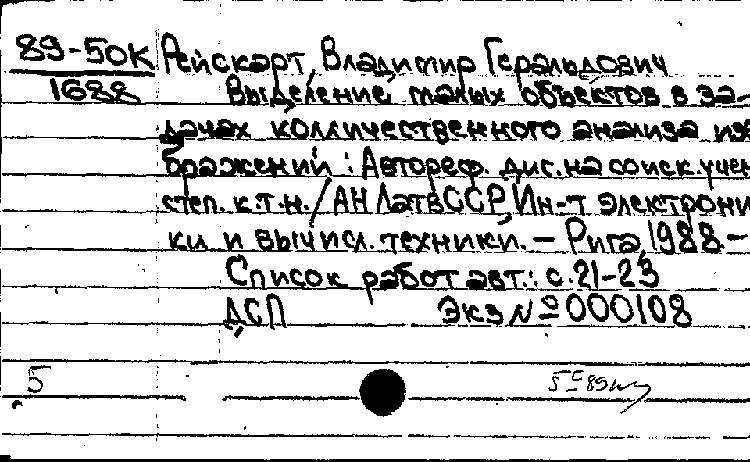 89-50К Рейскарт, Владимир Геральдович
1688 Выделение малых объектов в за-
дачах колличественного анализа изо
бражений : Автореф. дис. на соиск. учен
степ. к.т.н. / АН ЛатвССР, Ин-т электрони
ки и вычисл. техники. — Рига, 1988. —
Список работ авт.: с. 21-23
ДСП Экз № 000108
5